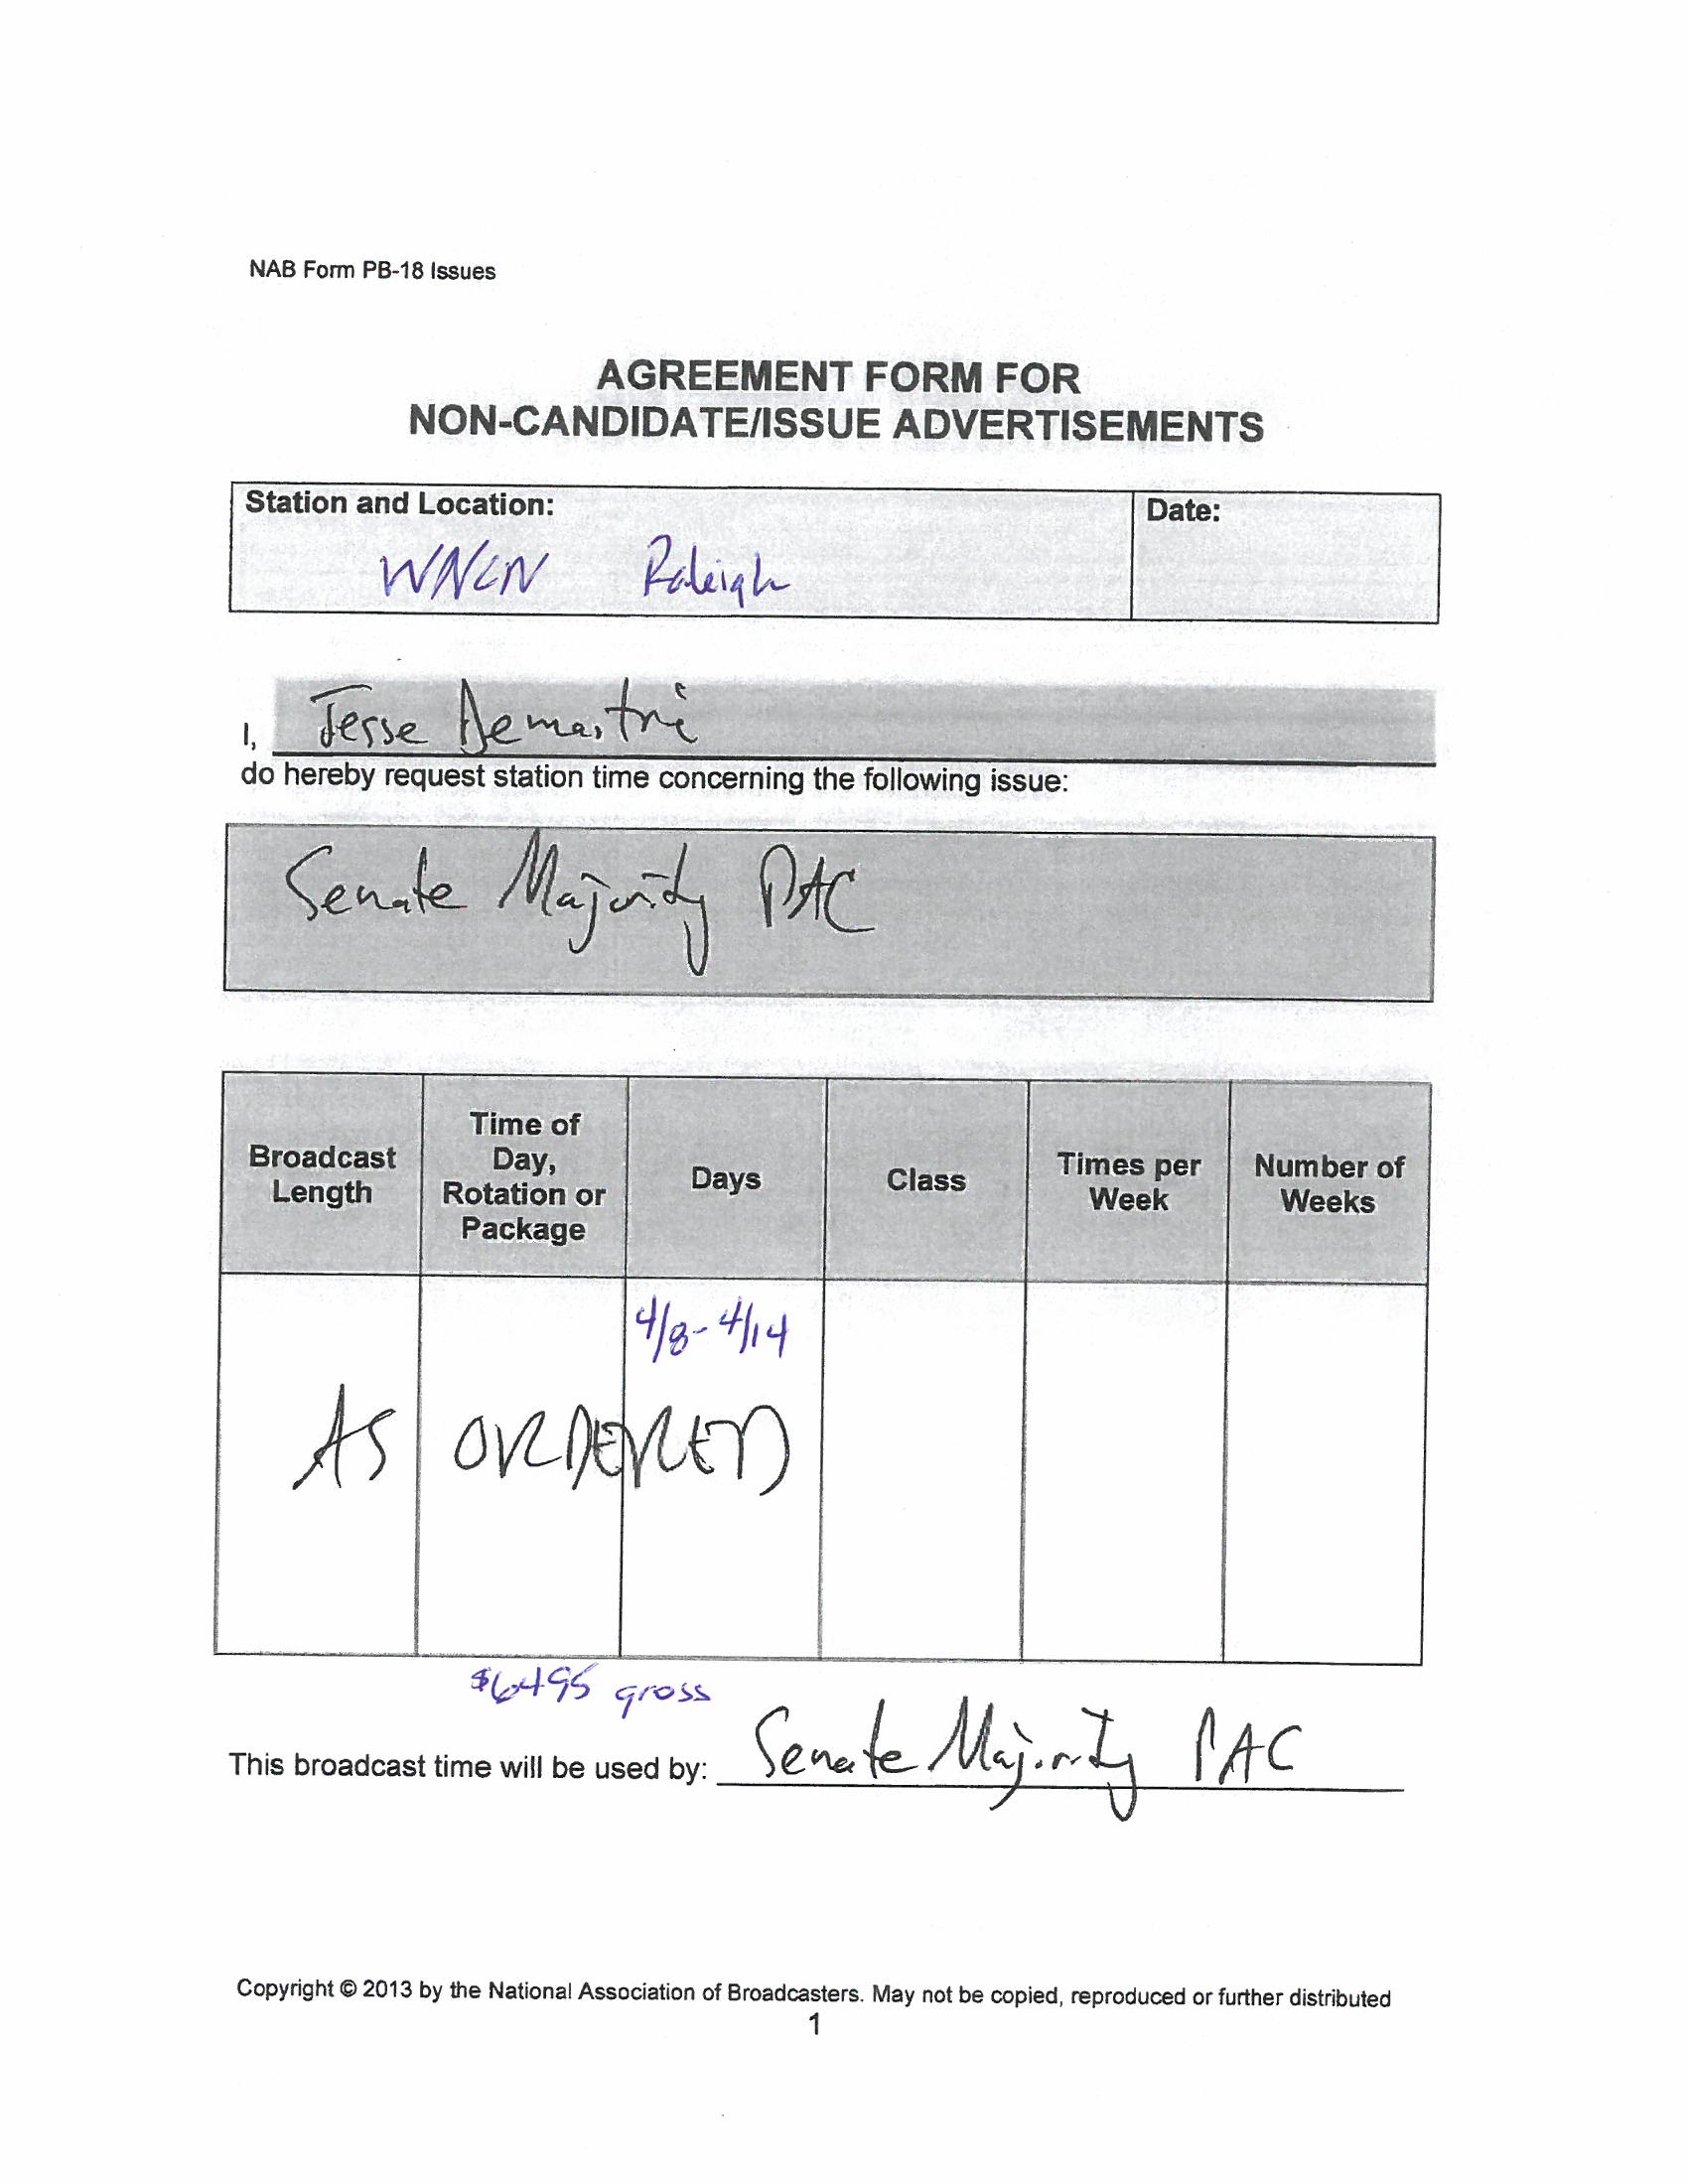 NAB Form PB-18 Issues
AGREEMENT FORM FOR
NON-CANDIDATE/ISSUE ADVERTISEMENTS
Station and Location:
Date:
WNCN Raleigh
I, Jesse Demastri
do hereby request station time concerning the following issue:
Senate Majority PAC
Broadcast Length
Time of Day, Rotation or Package
Days
Class
Times per Week
Number of Weeks
4/8-4/14
AS ORDERED
$6495 gross
This broadcast time will be used by: Senate Majority PAC
Copyright © 2013 by the National Association of Broadcasters. May not be copied, reproduced or further distributed
1